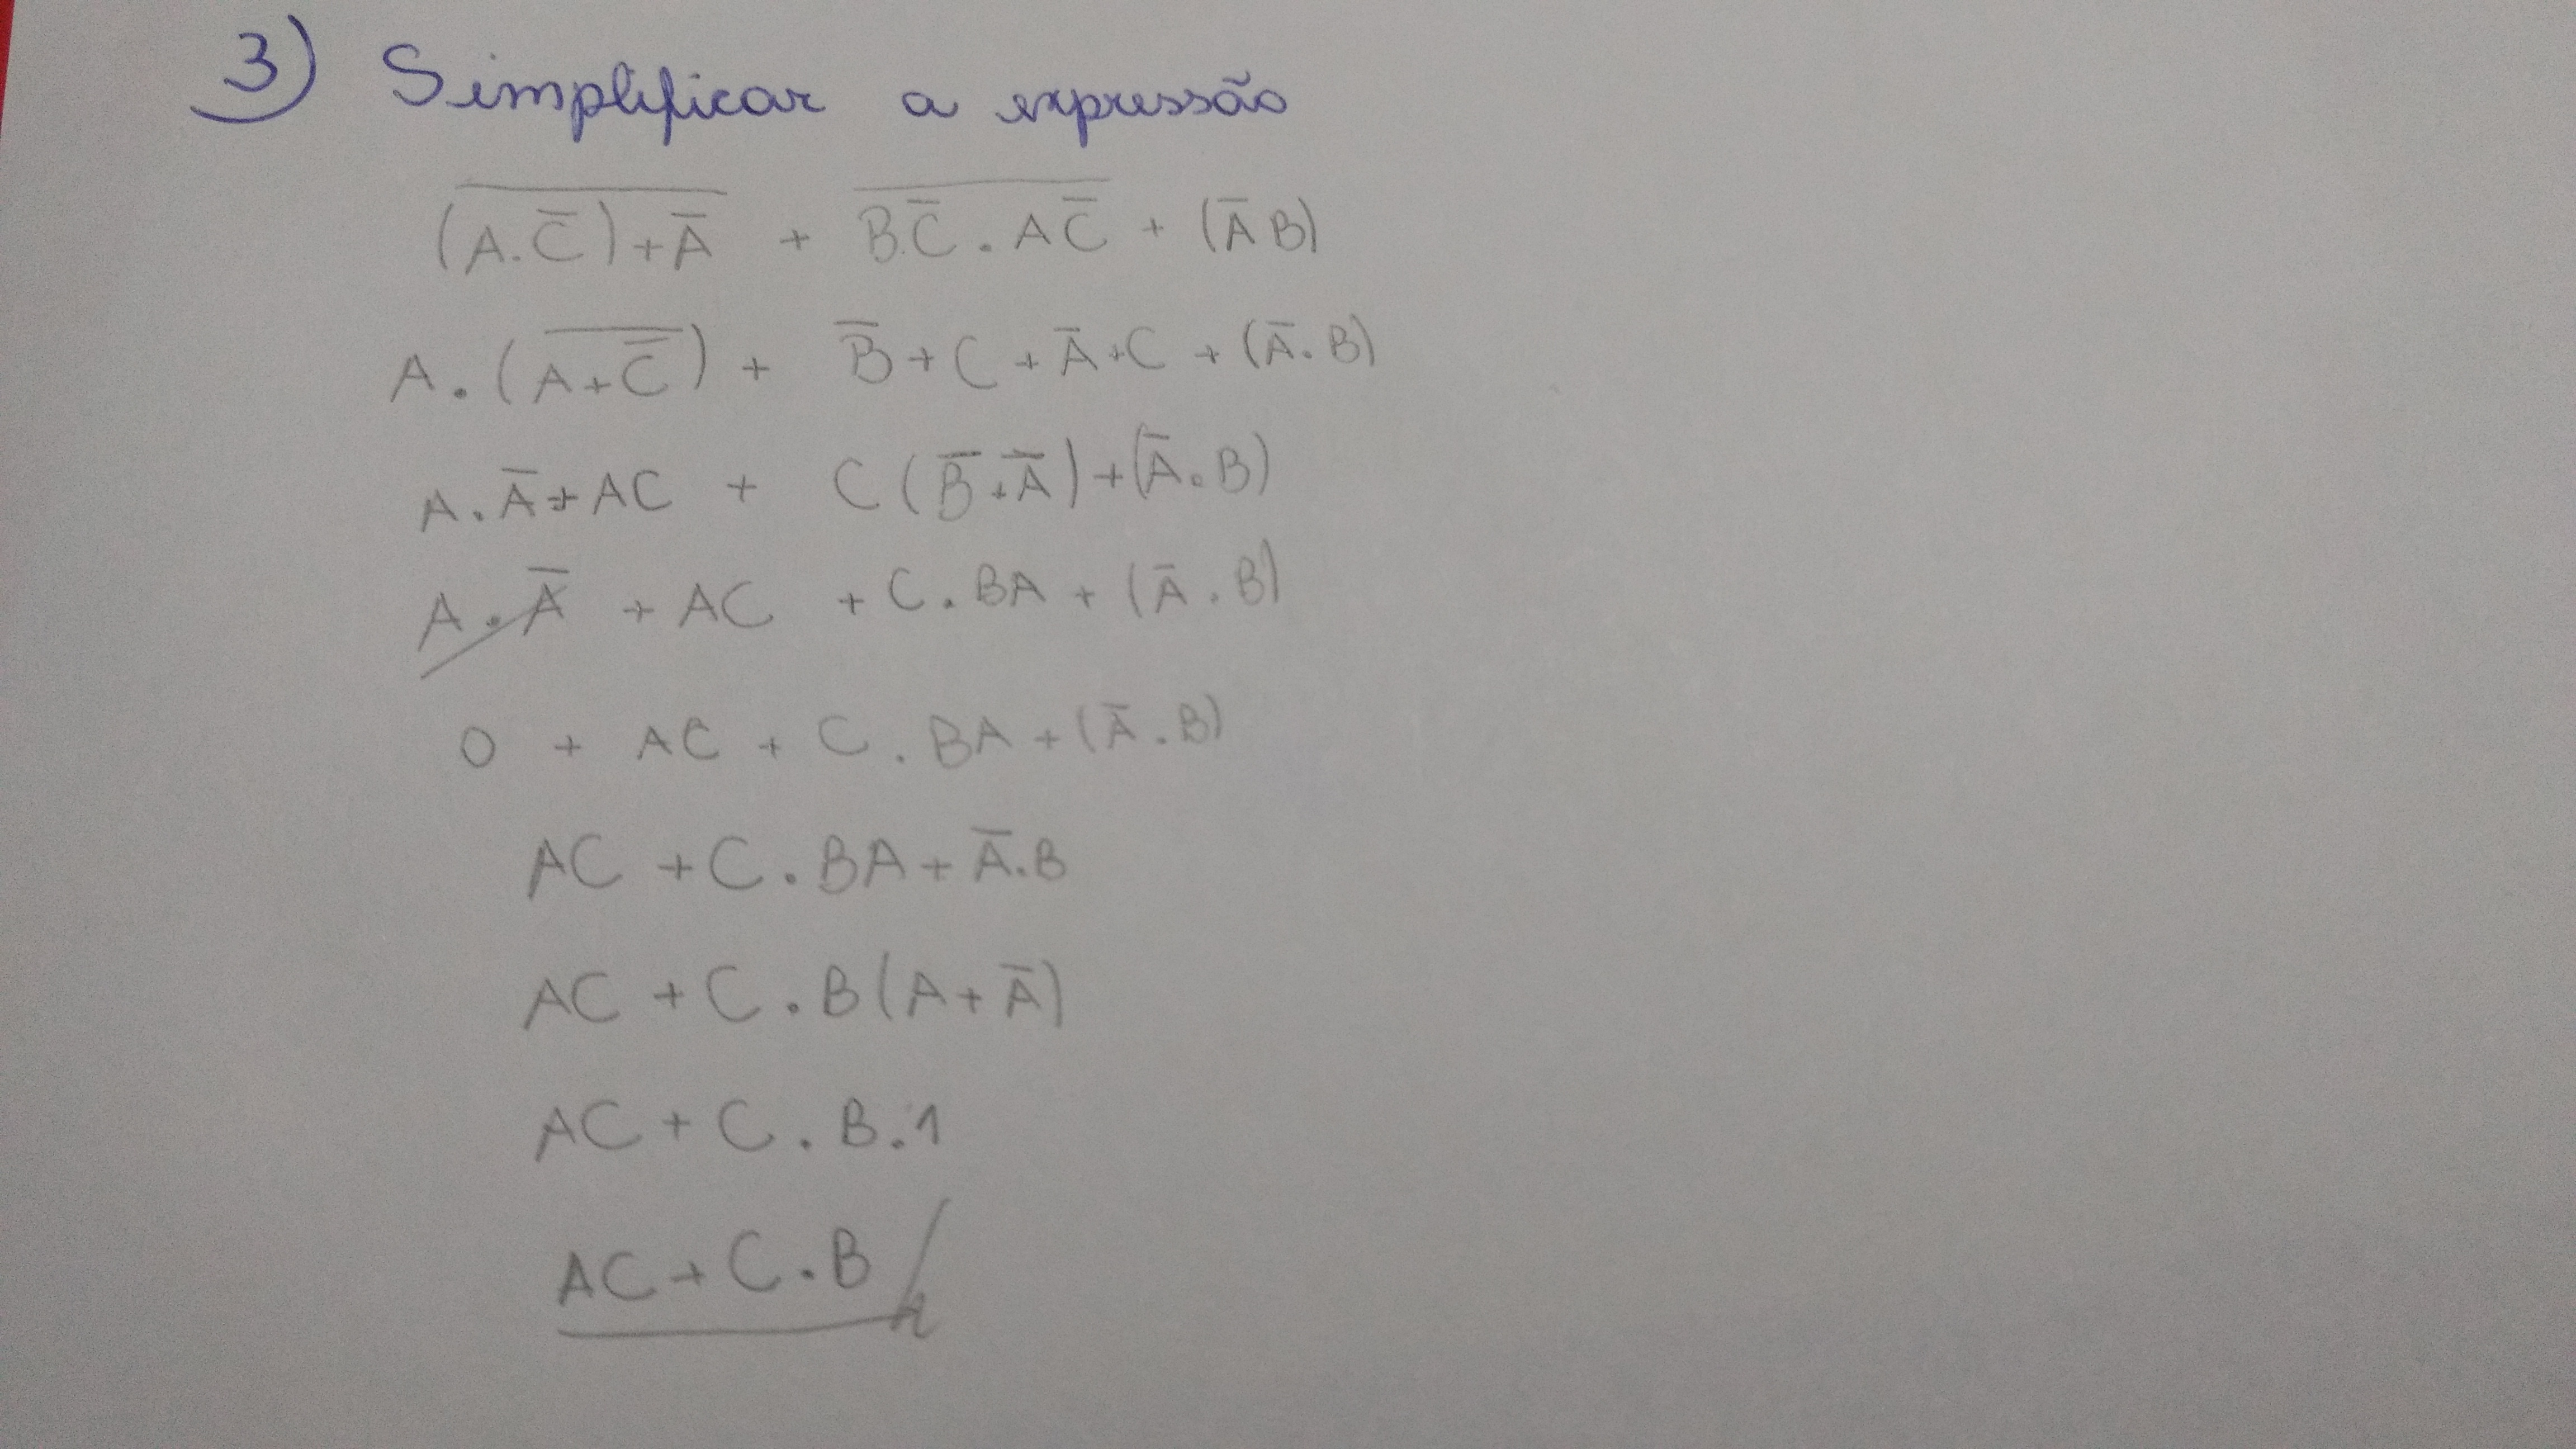 3) Simplificar a expressão
(A.C̅)+A̅ + B.C̅.AC̅ + (A̅B)
A.(A+C̅) + B̅+C+A̅+C+(A̅.B)
A.A̅+AC + C(B̅+A̅)+(A̅.B)
A.A̅ + AC + C.BA+(A̅.B)
0 + AC + C.BA+(A̅.B)
AC + C.BA+A̅.B
AC + C.B(A+A̅)
AC + C.B.1
AC + C.B